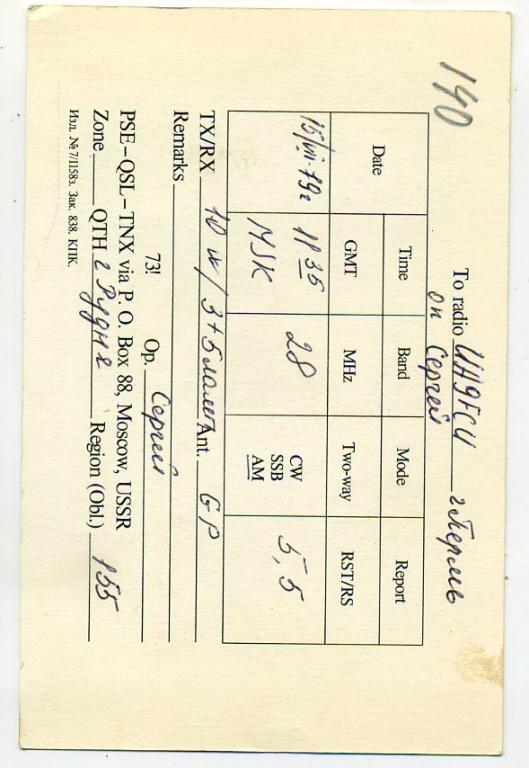 190
To radio г Пермь
оп Сергей
Date Time Band Mode Report
GMT MHz Two-way RST/RS
15/VII-79г 11 35 28 CW 5,5
MSK SSB
AM
TX/RX 10 w/ 3+5 ламп Ant. GP
Remarks
73! Op. Сергей
PSE-QSL-TNX via P. O. Box 88, Moscow, USSR
Zone QTH г Рудня Region (Obl.) 155
Изд. № 7/1158з. Зак. 838. КПК.